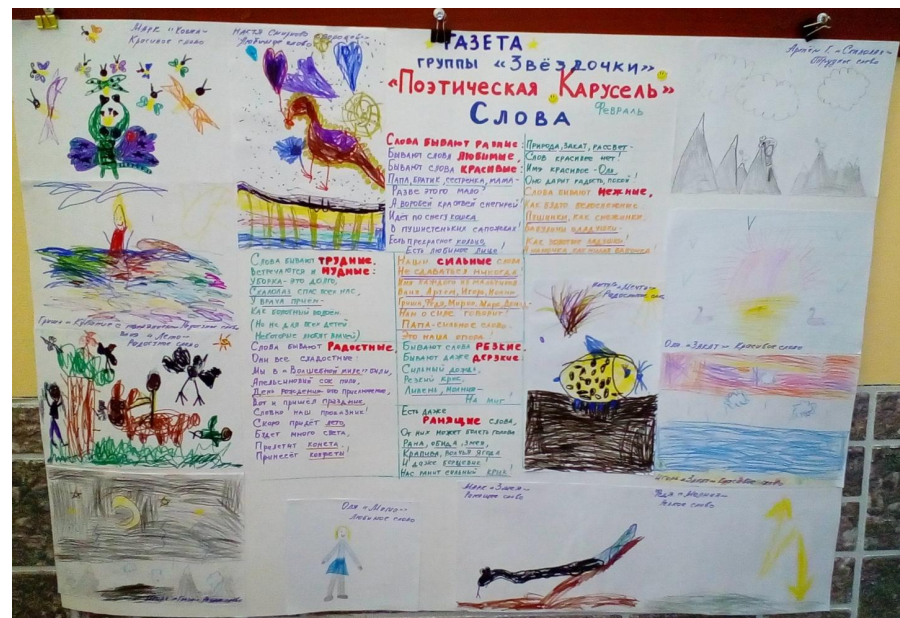 Марк "Кошка" -
Красивое слово
Настя Смирнова
Любимое слово
ГАЗЕТА
ГРУППЫ «ЗВЁЗДОЧКИ»
«ПОЭТИЧЕСКАЯ КАРУСЕЛЬ»
СЛОВА
ФЕВРАЛЬ
Артём Г. «Скалолаз»
Трудное слово
СЛОВА БЫВАЮТ РАЗНЫЕ,
БЫВАЮТ СЛОВА ЛЮБИМЫЕ,
БЫВАЮТ СЛОВА КРАСИВЫЕ:
ПАПА, БРАТИК, СЕСТРЕНКА, МАМА -
РАЗВЕ ЭТОГО МАЛО?
А ВОРОБЕЙ КРАСИВЕЙ СНЕГИРЕЙ!
ИДЁТ ПО СНЕГУ КОШКА
В ПУШИСТЕНЬКИХ САПОЖКАХ!
ЕСТЬ ПРЕКРАСНОЕ
ЕСТЬ ЛЮБИМОЕ ЛИЦО!
ПРИРОДА, ЗАКАТ, РАССВЕТ -
СЛОВ КРАСИВЕЕ НЕТ!
ИМЯ КРАСИВОЕ - ОЛЯ,
ОНО ДАРИТ РАДОСТЬ, ПОКОЙ!
СЛОВА БЫВАЮТ НЕЖНЫЕ,
КАК ВЗДОХ БЕЛОСНЕЖНЫЕ
ПУШИНКИ, КАК СНЕЖИНКИ,
БАБУШКИ ОЛАДУШКИ -
КАК ЗОЛОТЫЕ ЛАДУШКИ!
СЛОВА БЫВАЮТ ТРУДНЫЕ,
ВСТРЕЧАЮТСЯ И НУДНЫЕ:
УБОРКА - ЭТО ДОЛГО,
СКАЛОЛАЗ СПАС ВСЕХ НАС,
У ВРАЧА ПРИЁМ -
КАК ВОРОТНЫЙ ВОДОЁМ
(НО НЕ ДЛЯ ВСЕХ ДЕТЕЙ
НЕКОТОРЫЕ ЛЮБЯТ ВРАЧЕЙ)
СЛОВА БЫВАЮТ РАДОСТНЫЕ,
ОНИ ВСЕ СЛАДОСТНЫЕ:
МЫ В «ВОЛШЕБНОМ МИРЕ» БЫЛИ,
АПЕЛЬСИНОВЫЙ СОК ПИЛИ,
ДЕНЬ РОЖДЕНИЯ - ЭТО ПРИКЛЮЧЕНИЕ,
ВОТ И ПРИШЁЛ ПРАЗДНИК,
СЛОВНО НАШ ПРОКАЗНИК!
СКОРО ПРИДЁТ ЛЕТО,
БУДЕТ МНОГО СВЕТА,
ПРИЛЕТИТ КОМЕТА
ПРИНЕСЁТ КОНФЕТЫ!
НАШИ СИЛЬНЫЕ СЛОВА
НЕ СДАВАТЬСЯ НИКОГДА!
ИМЯ КАЖДОГО ИЗ МАЛЬЧИШЕК
ВАНЯ, АРТЁМ, ИГОРЬ,
ГРИША, ФЕДЯ, МИРОН, МАРК,
НАМ О СИЛЕ ГОВОРИТ!
ПАПА - СИЛЬНОЕ СЛОВО -
ЭТО НАША ОПОРА.
БЫВАЮТ СЛОВА РЕЗКИЕ,
БЫВАЮТ ДАЖЕ ДЕРЗКИЕ:
СИЛЬНЫЙ ДОЖДЬ,
РЕЗКИЙ КРИК,
ЛИВЕНЬ, МОЛНИЯ -
НА МИГ!
ЕСТЬ ДАЖЕ
РАНЯЩИЕ СЛОВА,
ОТ НИХ МОЖЕТ БОЛЕТЬ ГОЛОВА
РАНА, ОБИДА, ЗМЕЯ,
КРАПИВА, ВОЛЧЬЯ ЯГОДА
И ДАЖЕ БОРЩЕВИК!
НАС РАНИТ СИЛЬНЫЙ КРИК!
Радостное слово
Оля «Закат» - Красивое слово
«Закат» - Красивое слово
Оля «Мама» -
Любимое слово
Марк «Змея» -
Ранящее слово
Федя «Молния» -
Резкое слово